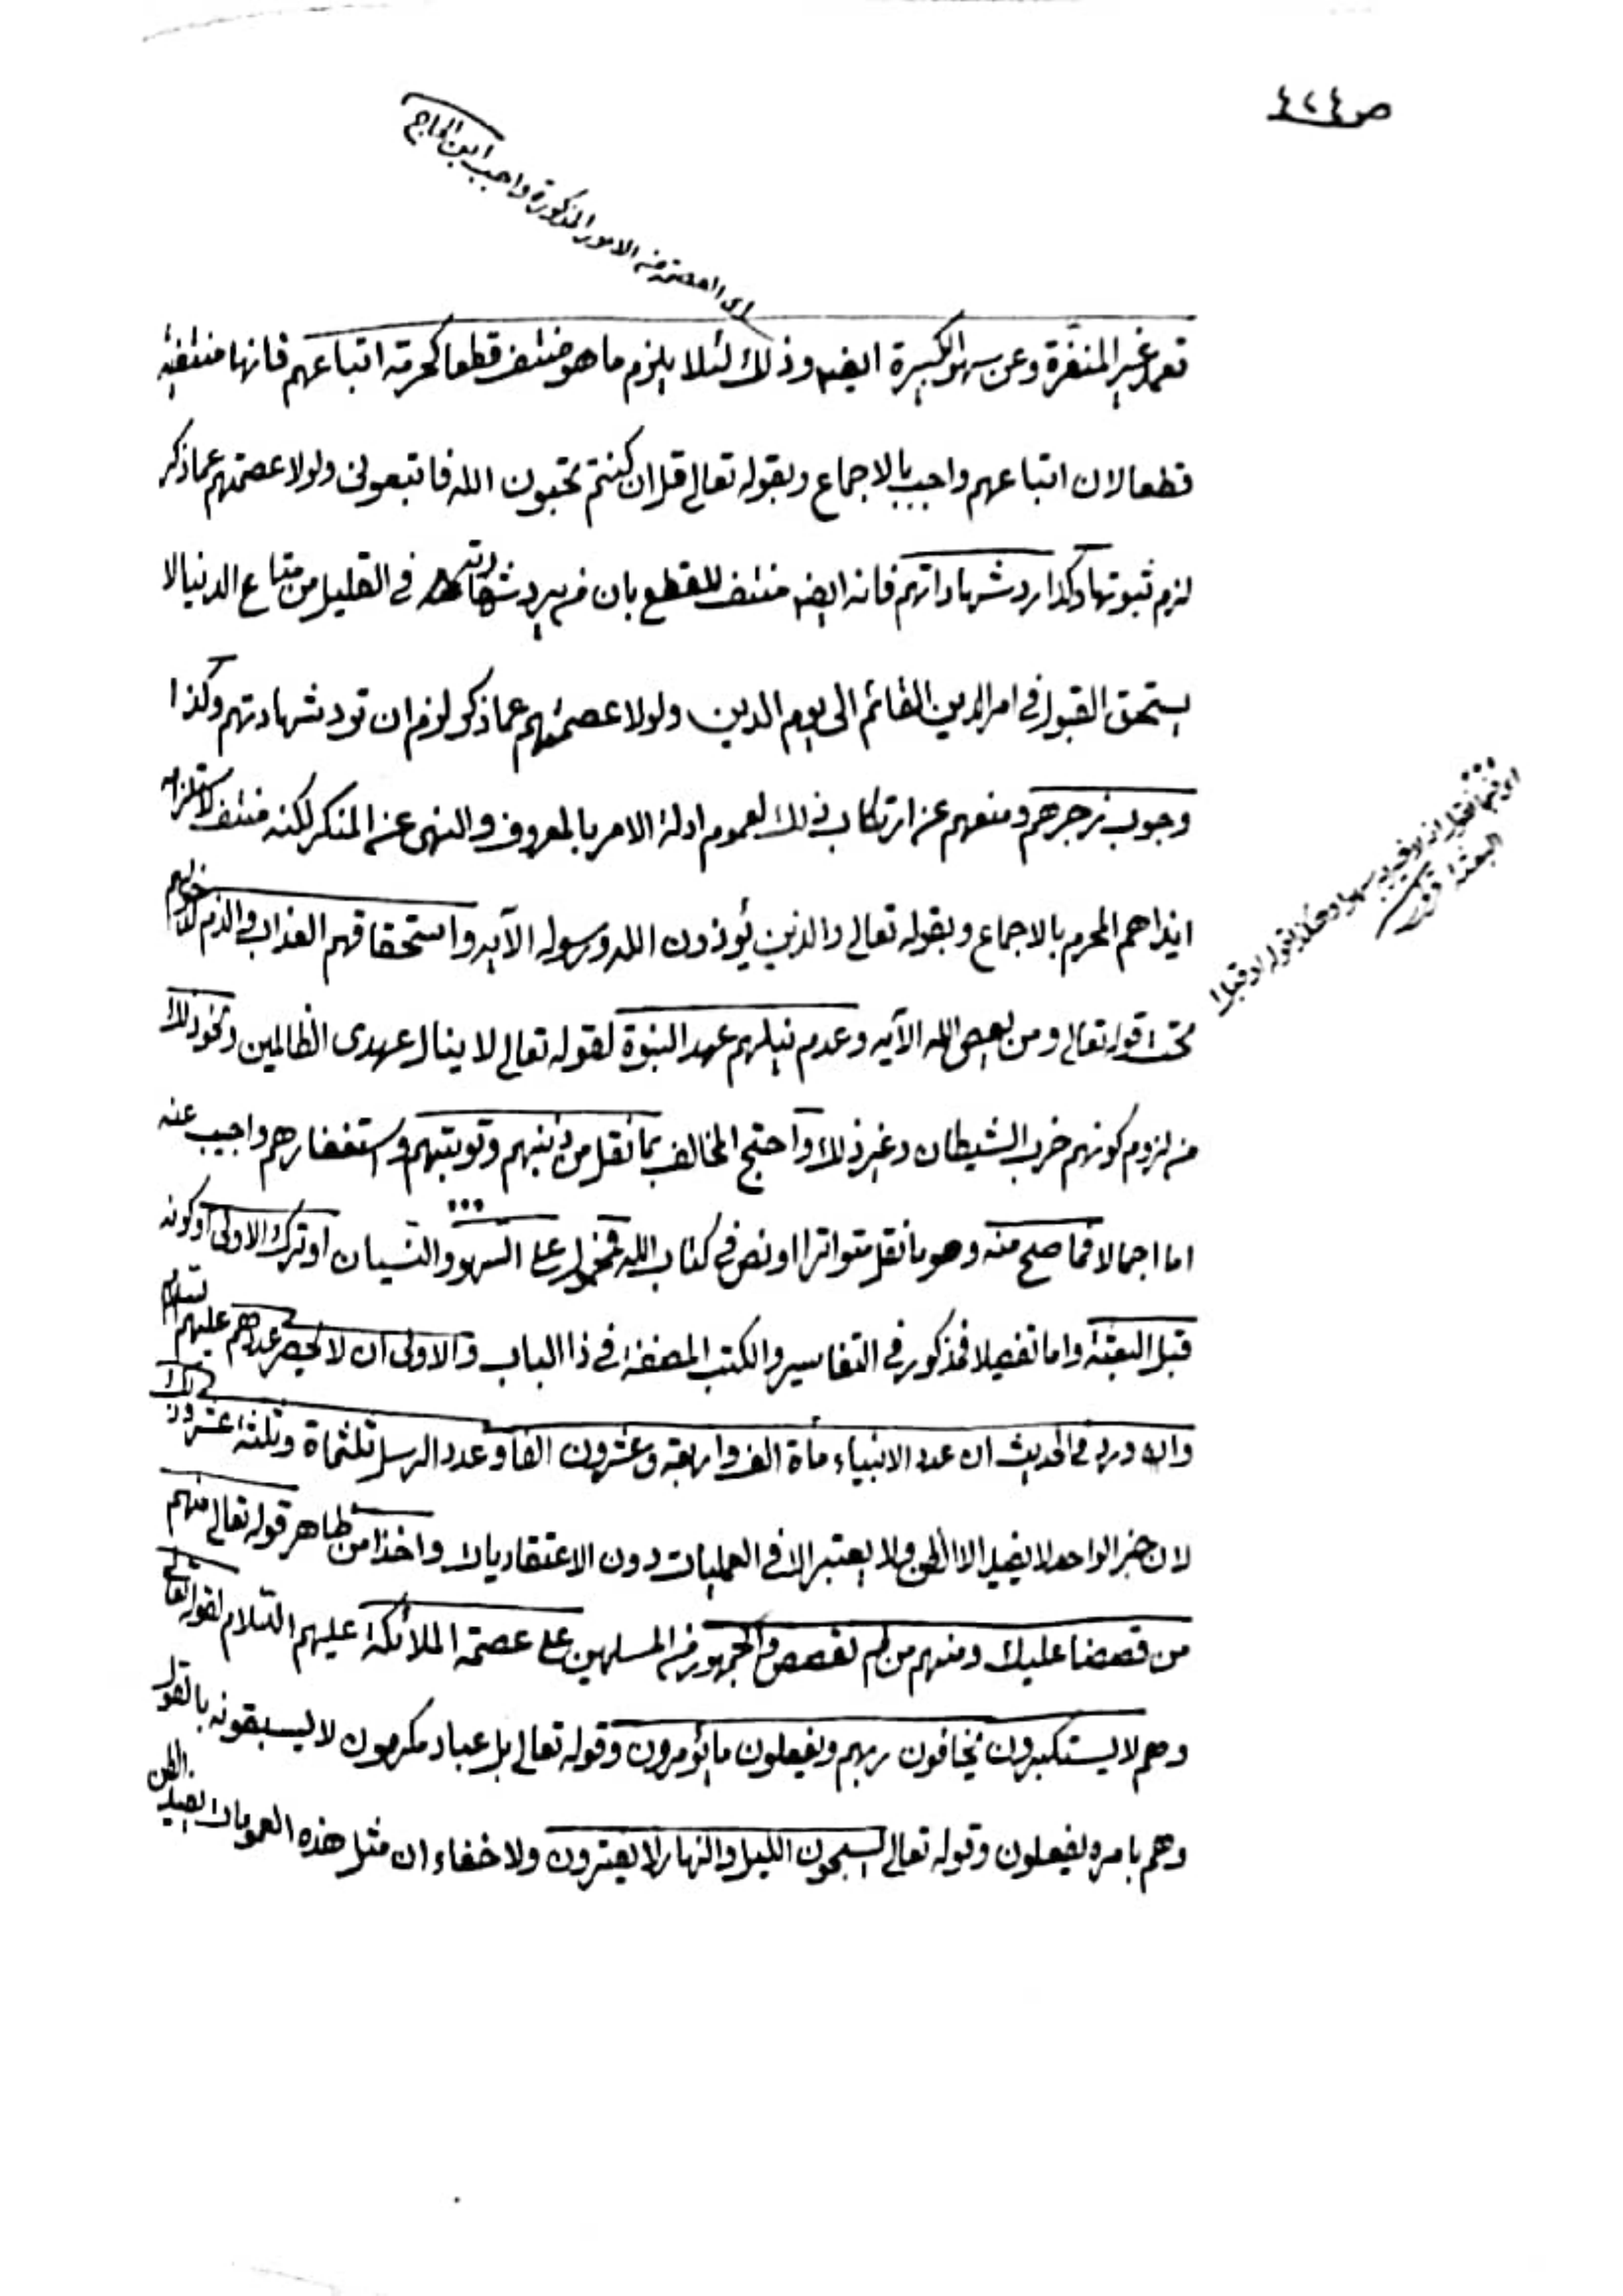 ص ٤٢٤
اى العصمة من الامور المذكورة واجب ابن الحاج
تعمد غير المنفرة وعن سهو الكبيرة ايضه وذلك لئلا يلزم ما هو منتف قطعا كحرمة اتباعهم فانها منتفية
قطعا لان اتباعهم واجب بالاجماع وبقوله تعالى قل ان كنتم تحبون الله فاتبعونى ولولا عصمتهم عما ذكر
لزم ثبوتها وكذا رد شهاداتهم فانه ايضه منتف للقطع بان من يرد شهادته فى القليل من متاع الدنيا لا
يستحق القبول فى امر الدين القائم الى يوم الدين ولولا عصمتهم عما ذكر لزم ان ترد شهادتهم وكذا
وجوب زجرهم ومنعهم عن ارتكاب ذلك لعموم ادلة الامر بالمعروف والنهى عن المنكر لكنه منتف لاستلزامه
ايذاهم المحرم بالاجماع وبقوله تعالى والذين يؤذون الله ورسوله الآيه واستحقاقهم العذاب والذم لدخولهم
تحت قوله تعالى ومن يعص الله الآيه وعدم نيلهم عهد النبوة لقوله تعالى لا ينال عهدى الظالمين ونحو ذلك
من لزوم كونهم حزب الشيطان وغير ذلك واحتج المخالف بما نقل من ذنبهم وتوبتهم واستغفارهم واجيب عنه
اما اجمالا فما صح منه وهو ما نقل متواترا او نص فى كتاب الله فمحمول على السهو والنسيان او ترك الاولى او كونه
قبل البعثة واما تفصيلا فمذكور فى التفاسير والكتب المصنفة فى ذا الباب والاولى ان لا يحصر عددهم عليهم السلام
وان ورد فى الحديث ان عدد الانبياء مأة الف واربعة وعشرون الفا وعدد الرسل ثلثمأة وثلثة عشر وذلك
لان خبر الواحد لا يفيد الا الظن ولا يعتبر الا فى العمليات دون الاعتقاديات واخذا من ظاهر قوله تعالى منهم
من قصصنا عليك ومنهم من لم نقصص والجمهور من المسلمين على عصمة الملائكة عليهم السلام لقوله تعالى
وهم لا يستكبرون يخافون ربهم ويفعلون ما يؤمرون وقوله تعالى بل عباد مكرمون لا يسبقونه بالقول
وهم بامره يفعلون وقوله تعالى يسبحون الليل والنهار لا يفترون ولا خفاء ان مثل هذه العمومات يفيد الظن